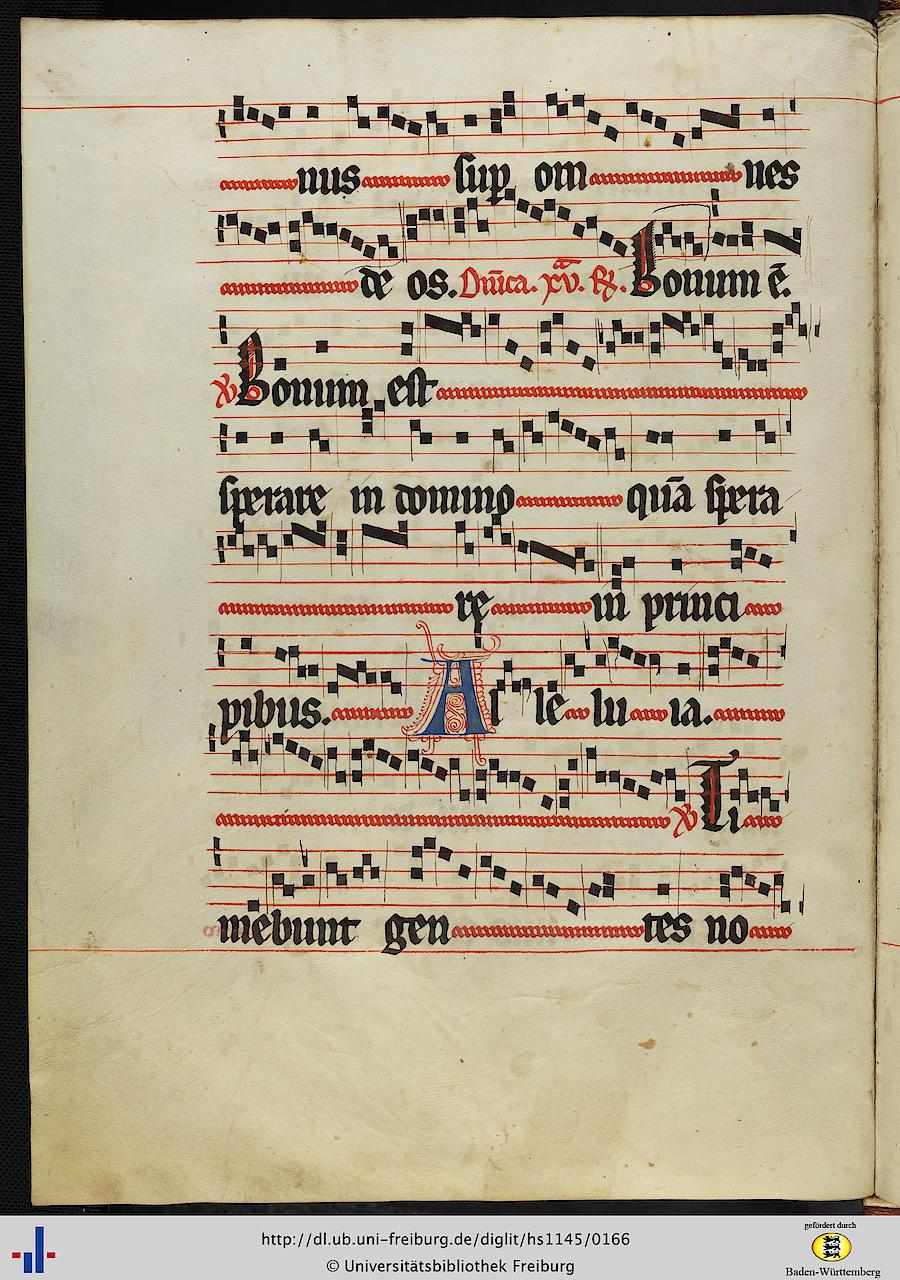 nus sup om nes
de os. Dn̄ica. xv.ᵃ R̃. Bonum ē.
℣ Bonum est
sperare in domino quā spera
re in princi
pibus. Al le lu ia.
℣ Ti
mebunt gen tes no
http://dl.ub.uni-freiburg.de/diglit/hs1145/0166
© Universitätsbibliothek Freiburg
gefördert durch
Baden-Württemberg